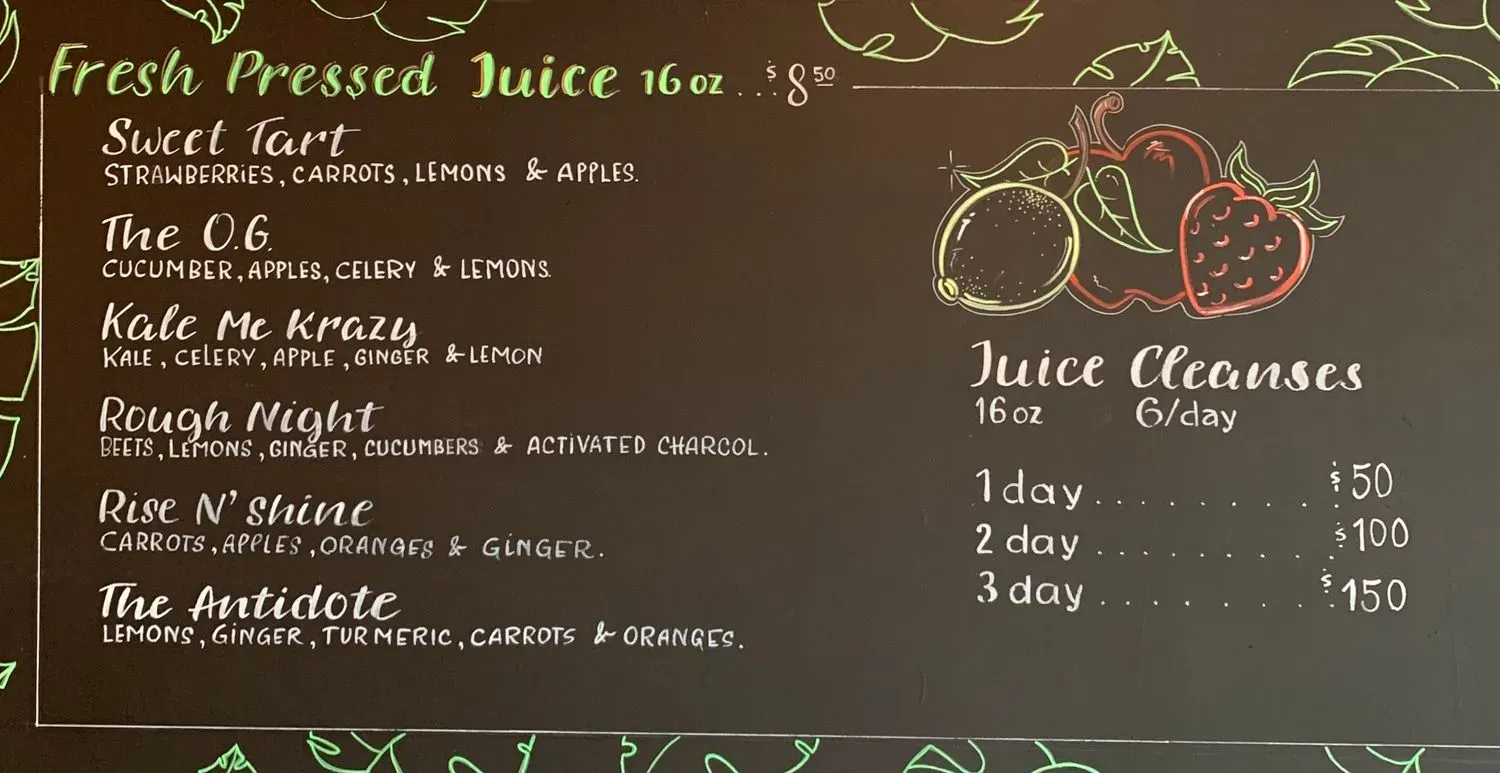 Fresh Pressed Juice 16 oz ... $8.50
Sweet Tart
STRAWBERRiES, CARROTS, LEMONS & APPLES.
The O.G.
CUCUMBER, APPLES, CELERY & LEMONS.
Kale Me Krazy
KALE, CELERY, APPLE, GINGER & LEMON
Rough Night
BEETS, LEMONS, GINGER, CUCUMBERS & ACTIVATED CHARCOL.
Rise N' Shine
CARROTS, APPLES, ORANGES & GINGER.
The Antidote
LEMONS, GINGER, TURMERIC, CARROTS & ORANGES.
Juice Cleanses
16 oz 6/day
1 day......... $50
2 day......... $100
3 day......... $150